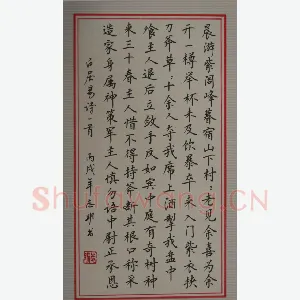 晨游紫阁峰暮宿山下村:老见余喜为余
开一樽举杯未及饮暴卒来入门紫衣挟
刀斧草:十余人夺我席上酒掣我盘中
飧主人退后立敛手反如宾中庭有奇树种
来三十春主人惜不得持斧断其根口称采
造家身属神策军主人慎勿语中尉正承恩
白居易诗一首 丙戌年 书